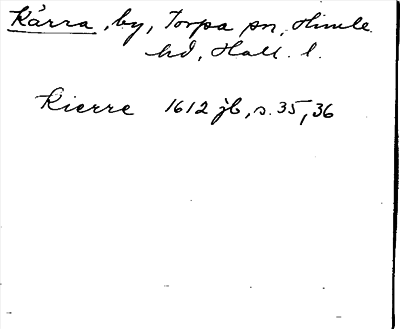 Kärra, by, Torpa sn, Himle
hd, Hall. l.
Kierre 1612 jb, s. 35, 36